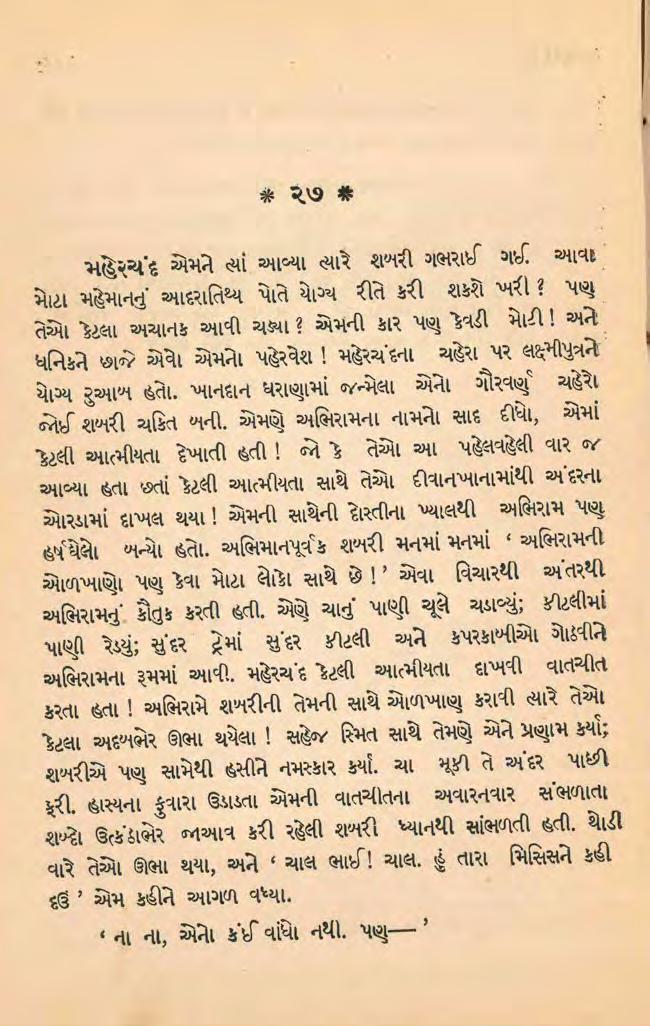 * ૨૭ *
મહેરચંદ એમને ત્યાં આવ્યા ત્યારે શબરી ગભરાઈ ગઈ. આવા
મોટા મહેમાનનું આદરાતિથ્ય પોતે યોગ્ય રીતે કરી શકશે ખરી? પણ
તેઓ કેટલા અચાનક આવી ચડ્યા? એમની કાર પણ કેવડી મોટી! અને
ધનિકને છાજે એવો એમનો પહેરવેશ! મહેરચંદના ચહેરા પર લક્ષ્મીપુત્રને
યોગ્ય રુઆબ હતો. ખાનદાન ઘરાણામાં જન્મેલા એનો ગૌરવર્ણ ચહેરો
જોઈ શબરી ચકિત બની. એમણે અભિરામના નામનો સાદ દીધો, એમાં
કેટલી આત્મીયતા દેખાતી હતી! જો કે તેઓ આ પહેલવહેલી વાર જ
આવ્યા હતા છતાં કેટલી આત્મીયતા સાથે તેઓ દીવાનખાનામાંથી અંદરના
ઓરડામાં દાખલ થયા! એમની સાથેની દોસ્તીના ખ્યાલથી અભિરામ પણ
હર્ષઘેલો બન્યો હતો. અભિમાનપૂર્વક શબરી મનમાં મનમાં ‘ અભિરામની
ઓળખાણો પણ કેવા મોટા લોકો સાથે છે!’ એવા વિચારથી અંતરથી
અભિરામનું કૌતુક કરતી હતી. એણે ચાનું પાણી ચૂલે ચડાવ્યું; કીટલીમાં
પાણી રેડ્યું; સુંદર ટ્રેમાં સુંદર કીટલી અને કપરકાબીઓ ગોઠવીને
અભિરામના રૂમમાં આવી. મહેરચંદ કેટલી આત્મીયતા દાખવી વાતચીત
કરતા હતા! અભિરામે શબરીની તેમની સાથે ઓળખાણ કરાવી ત્યારે તેઓ
કેટલા અદબભેર ઊભા થયેલા! સહેજ સ્મિત સાથે તેમણે એને પ્રણામ કર્યા;
શબરીએ પણ સામેથી હસીને નમસ્કાર કર્યા. ચા મૂકી તે અંદર પાછી
ફરી. હાસ્યના ફુવારા ઉડાડતા એમની વાતચીતના અવારનવાર સંભળાતા
શબ્દો ઉત્કંઠાભેર જાઆવ કરી રહેલી શબરી ધ્યાનથી સાંભળતી હતી. થોડી
વારે તેઓ ઊભા થયા, અને ‘ ચાલ ભાઈ! ચાલ. હું તારા મિસિસને કહી
દઉં ’ એમ કહીને આગળ વધ્યા.
‘ ના ના, એનો કંઈ વાંધો નથી. પણ— ’